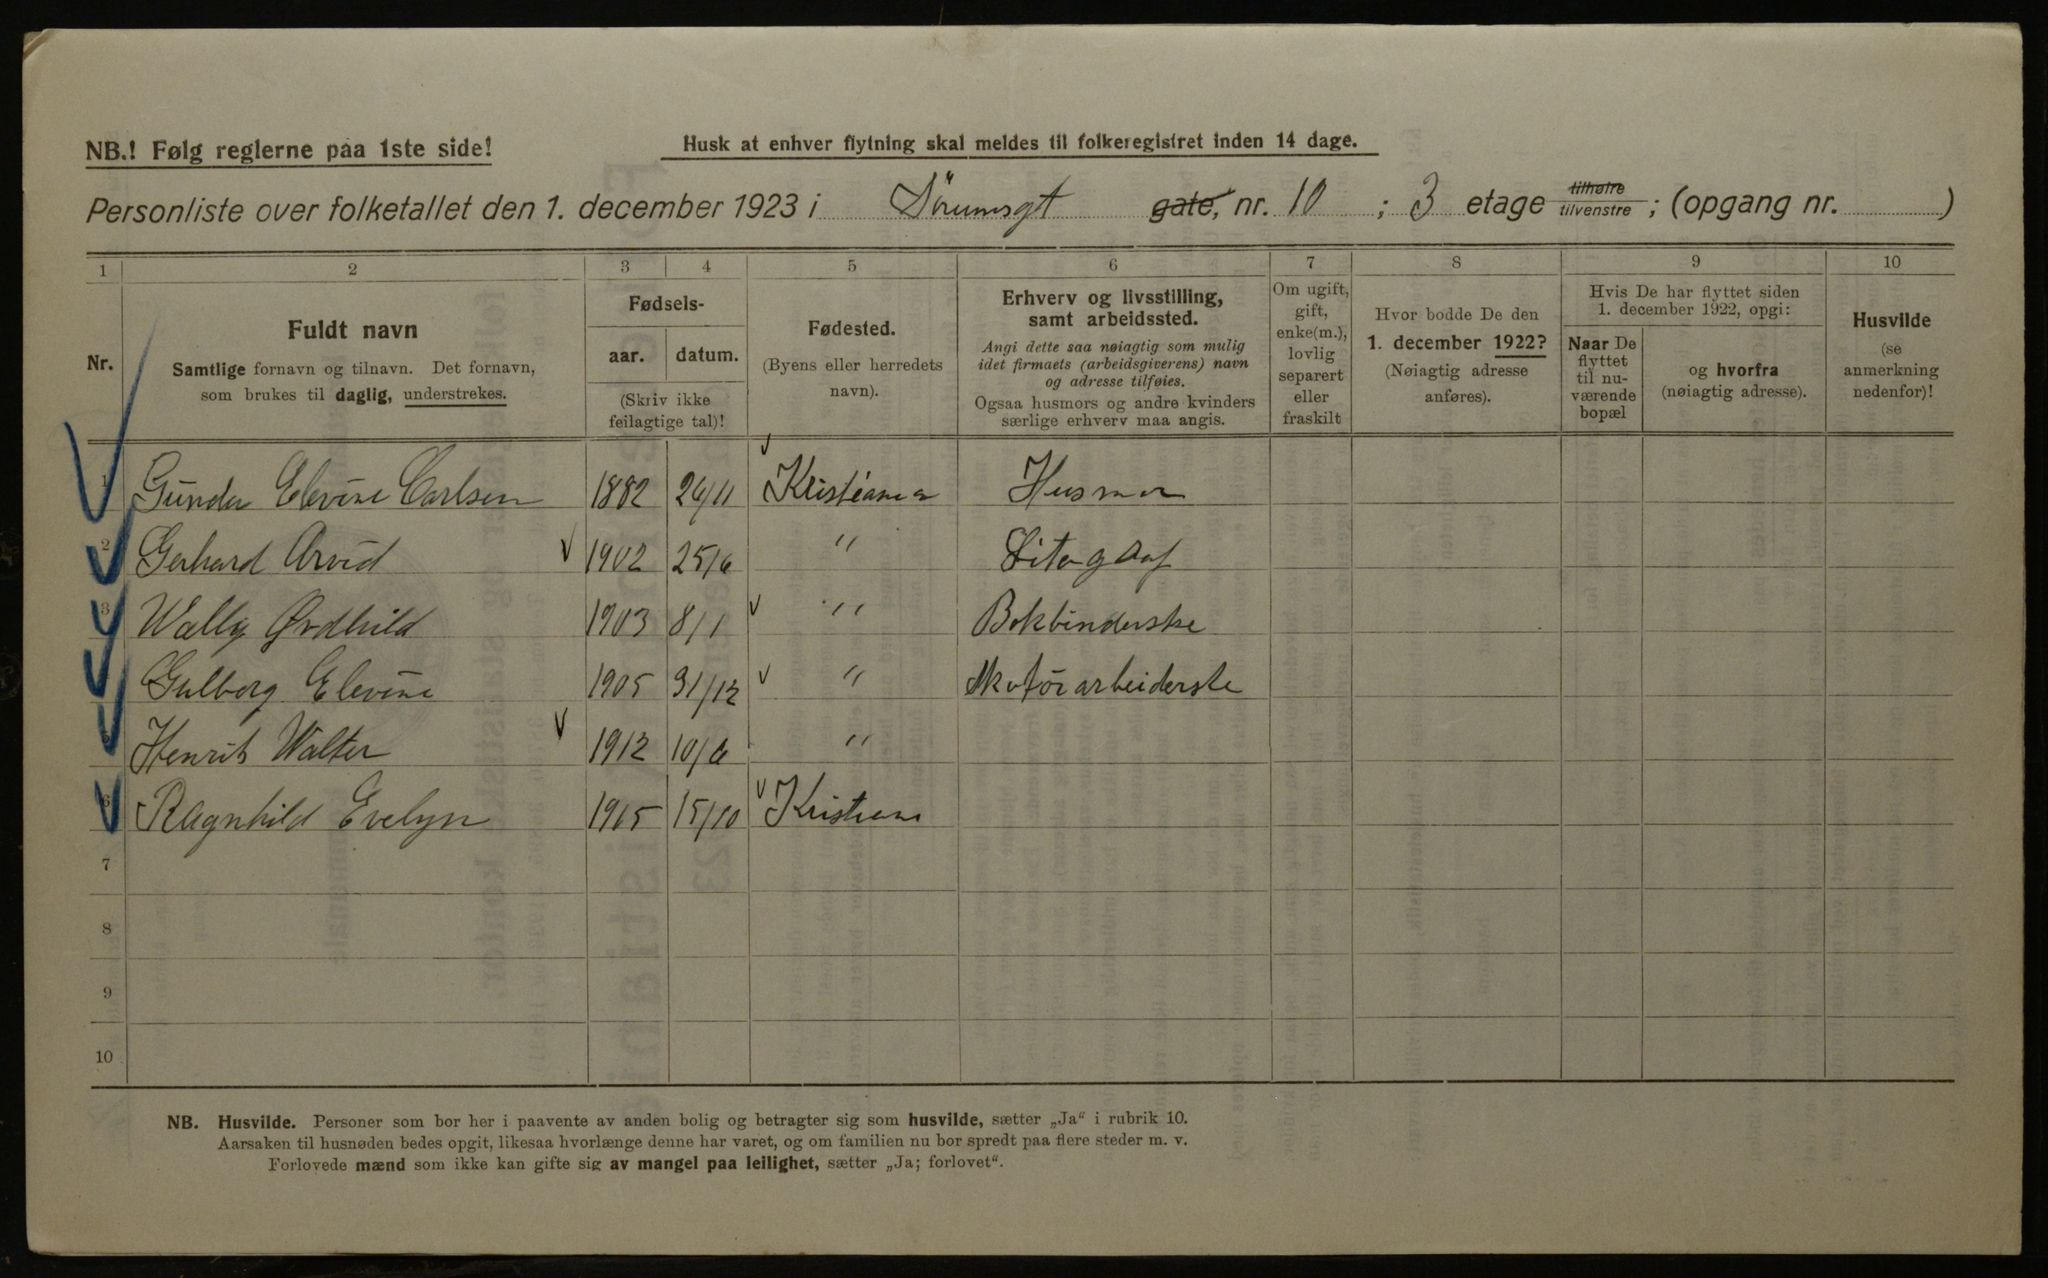 NB.! Følg reglerne paa 1ste side!
Husk at enhver flytning skal meldes til folkeregistret inden 14 dage.
Personliste over folketallet den 1. december 1923 i Sörumsgt gate, nr. 10 ; 3 etage tilhøire tilvenstre ; (opgang nr. )
1 2 3 4 5 6 7 8 9 10
Nr.
Fuldt navn
Samtlige fornavn og tilnavn. Det fornavn,
som brukes til daglig, understrekes.
Fødsels-
aar. datum.
(Skriv ikke
feilagtige tal)!
Fødested.
(Byens eller herredets
navn).
Erhverv og livsstilling,
samt arbeidssted.
Angi dette saa nøiagtig som mulig
idet firmaets (arbeidsgiverens) navn
og adresse tilføies.
Ogsaa husmors og andre kvinders
særlige erhverv maa angis.
Om ugift,
gift,
enke(m.),
lovlig
separert
eller
fraskilt
Hvor bodde De den
1. december 1922?
(Nøiagtig adresse
anføres).
Hvis De har flyttet siden
1. december 1922, opgi:
Naar De
flyttet
til nu-
værende
bopæl
og hvorfra
(nøiagtig adresse).
Husvilde
(se
anmerkning
nedenfor)!
1 Gunda Elevine Carlsen 1882 26/11 Kristiania Husmor
2 Gerhard Arvid 1902 25/6 " Litograf
3 Wally Ørdhild 1903 8/1 " Bokbinderske
Gulborg Elevine 1905 31/12 " Skotöiarbeiderske
5 Henrik Walter 1912 10/6 "
6 Ragnhild Evelyn 1915 15/10 Kristiania
7
8
9
10
NB. Husvilde. Personer som bor her i paavente av anden bolig og betragter sig som husvilde, sætter „Ja“ i rubrik 10.
Aarsaken til husnøden bedes opgit, likesaa hvorlænge denne har varet, og om familien nu bor spredt paa flere steder m. v.
Forlovede mænd som ikke kan gifte sig av mangel paa leilighet, sætter „Ja; forlovet“.